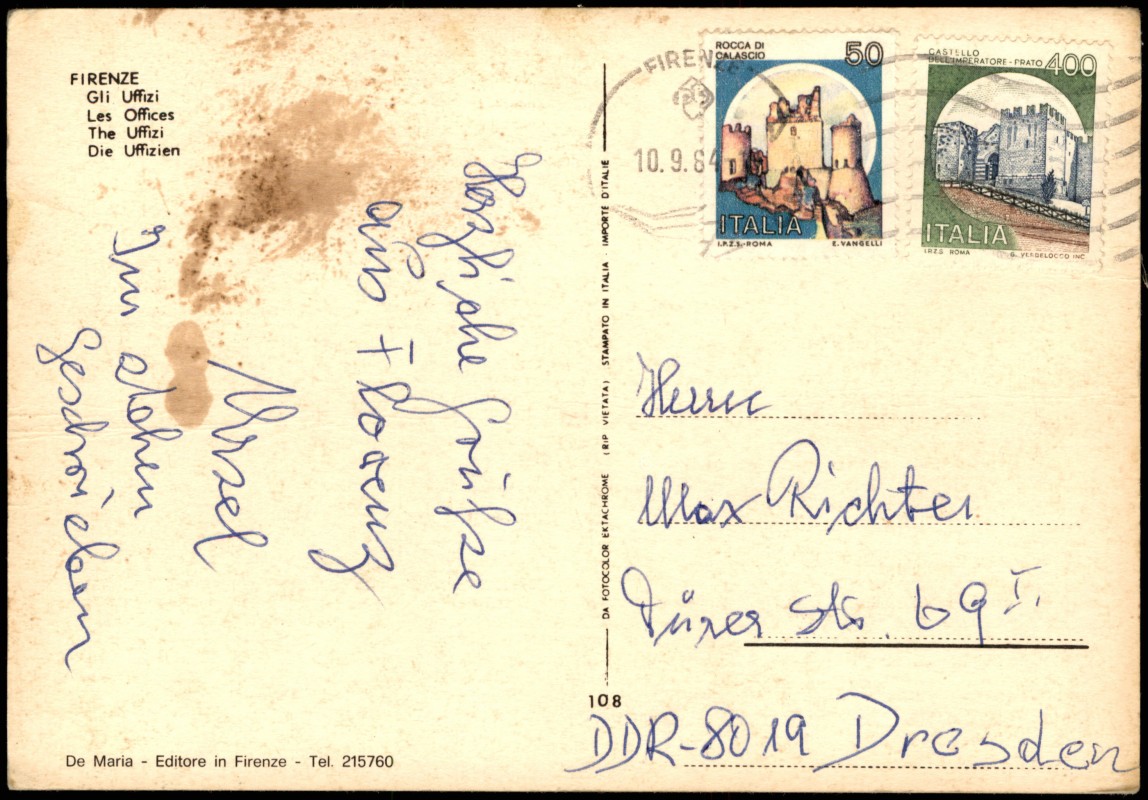 FIRENZE
Gli Uffizi
Les Offices
The Uffizi
Die Uffizien
Herzliche Grüße
aus Florenz
Ursel
Im Stehen
geschrieben
De Maria - Editore in Firenze - Tel. 215760
DA FOTOCOLOR EKTACHROME (RIP. VIETATA) STAMPATO IN ITALIA - IMPORTE D'ITALIE
108
FIRENZE
10.9.84
ROCCA DI
CALASCIO
50
ITALIA
I.P.Z.S.-ROMA E. VANGELLI
CASTELLO
DELL'IMPERATORE-PRATO
400
ITALIA
I.P.Z.S. ROMA
Herrn
Max Richter
Dürer Str. 69 I.
DDR-8019 Dresden